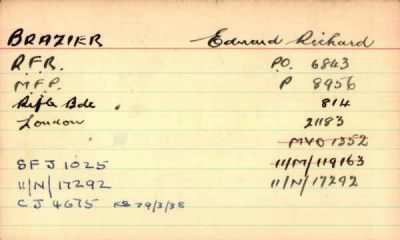 BRAZIER Edward Richard
R.F.R. PO. 6843
M.F.P. P 8956
Rifle Bde 814
London 21183
MVO 1352
SFJ 1025 11/M/119163
11/N/17292 11/N/17292
CJ 4675 29/3/38